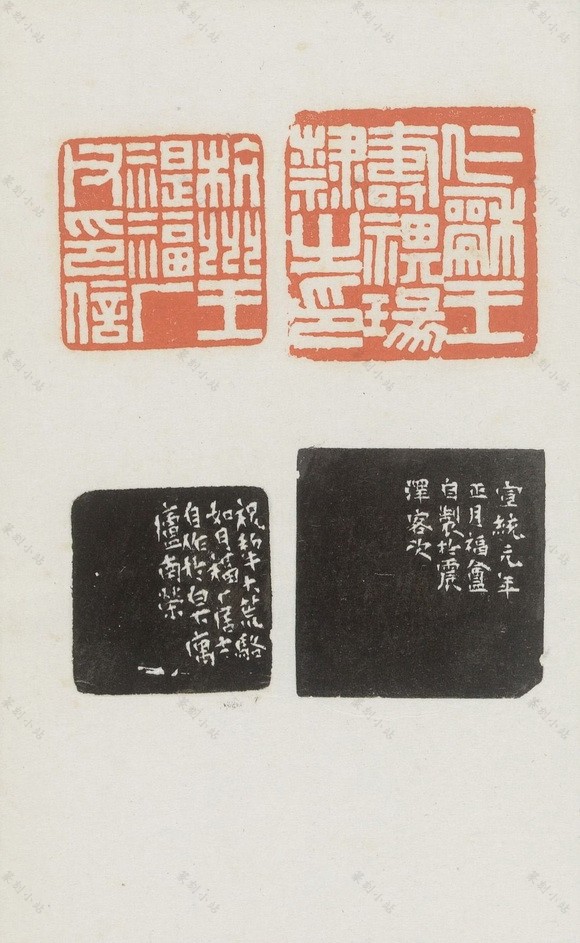 仁龢王
壽瑒
隸之印
杭州王
禔福厂
父印信
宣統元年
正月福盦
自製於震
澤客次
祝犁大荒駱
如月福厂居士
自作於寓
廬南榮
篆刻小站